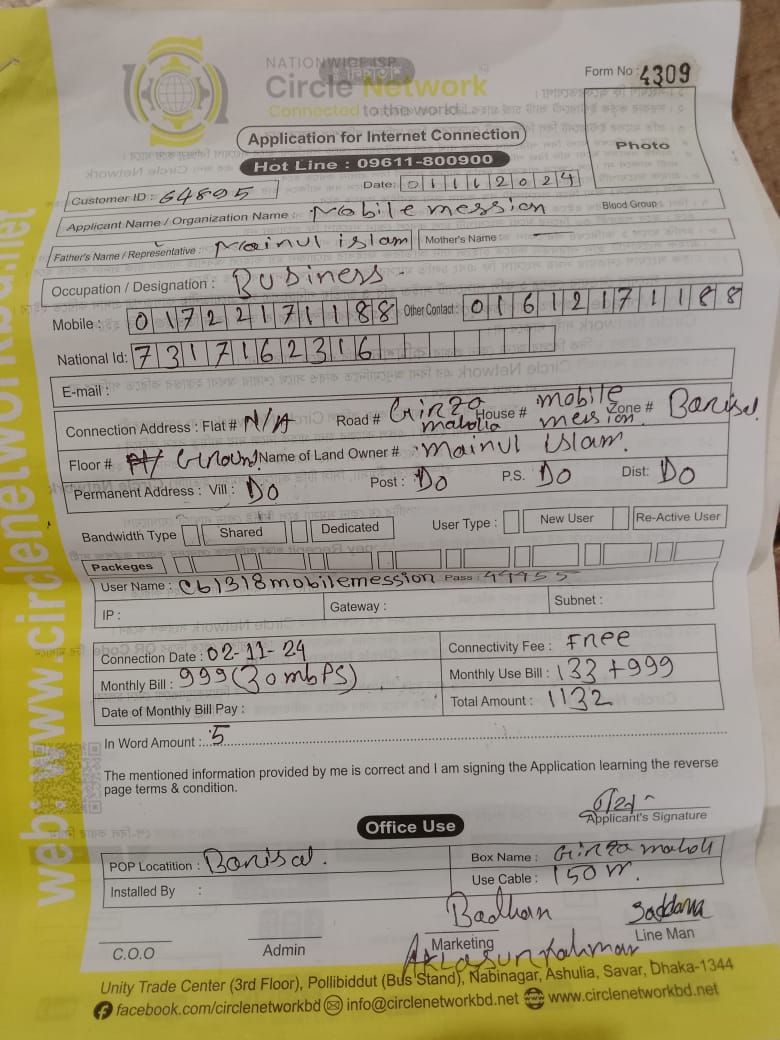 NATIONWIDE ISP
Circle Network
Connected to the world
Form No : 4309
Photo
Application for Internet Connection
Hot Line : 09611-800900
Customer ID : 64895
Date: 01112024
Applicant Name / Organization Name : Mobile mession
Blood Group :
Father's Name / Representative : Mainul islam Mother's Name : —
Occupation / Designation : Business -
Mobile : 01722171188 Other Contact : 01612171188
National Id: 7317162316
E-mail :
Connection Address : Flat # N/A Road # Girza maholla House # mobile mession Zone # Barisal
Floor # Ground Name of Land Owner # mainul islam.
Permanent Address : Vill : Do Post : Do P.S. Do Dist: Do
Bandwidth Type Shared Dedicated User Type : New User Re-Active User
Packeges
User Name : cb1318mobilemession Pass :
IP : Gateway : Subnet :
Connection Date : 02-11-24 Connectivity Fee : Free
Monthly Bill : 999 (30 mbps) Monthly Use Bill : 133 + 999
Date of Monthly Bill Pay : Total Amount : 1132
In Word Amount : 5
The mentioned information provided by me is correct and I am signing the Application learning the reverse
page terms & condition.
Applicant's Signature
Office Use
POP Locatition : Barisal. Box Name : Girza maholl
Installed By : Use Cable : 150 m.
Badhan
C.O.O Admin Marketing Line Man
Unity Trade Center (3rd Floor), Pollibiddut (Bus Stand), Nabinagar, Ashulia, Savar, Dhaka-1344
facebook.com/circlenetworkbd info@circlenetworkbd.net www.circlenetworkbd.net
web: www.circlenetworkbd.net